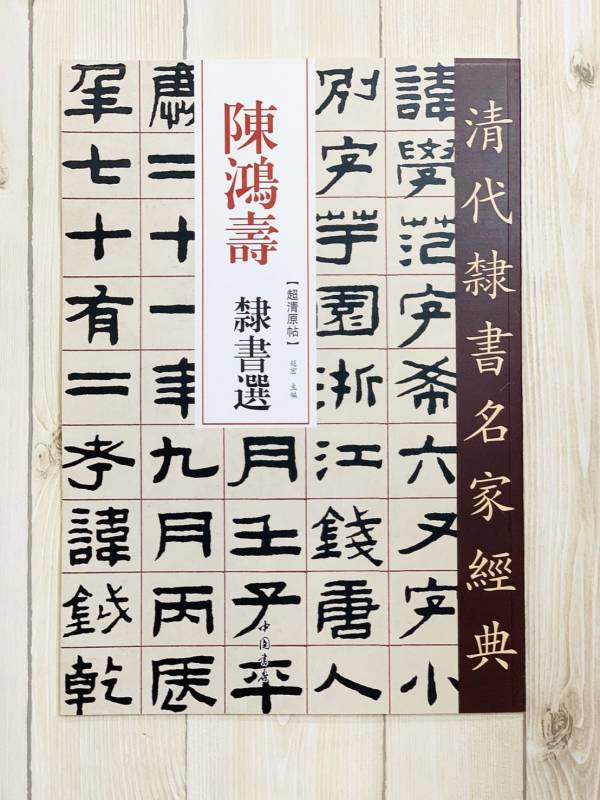 清代隸書名家經典
陳鴻壽
隸書選
【超清原帖】
超宏 主編
諱學范字希六又字小
別字芋園浙江錢唐人
月壬子平
惠二十一年九月丙辰
年七十有二考諱鉞乾
中国书店